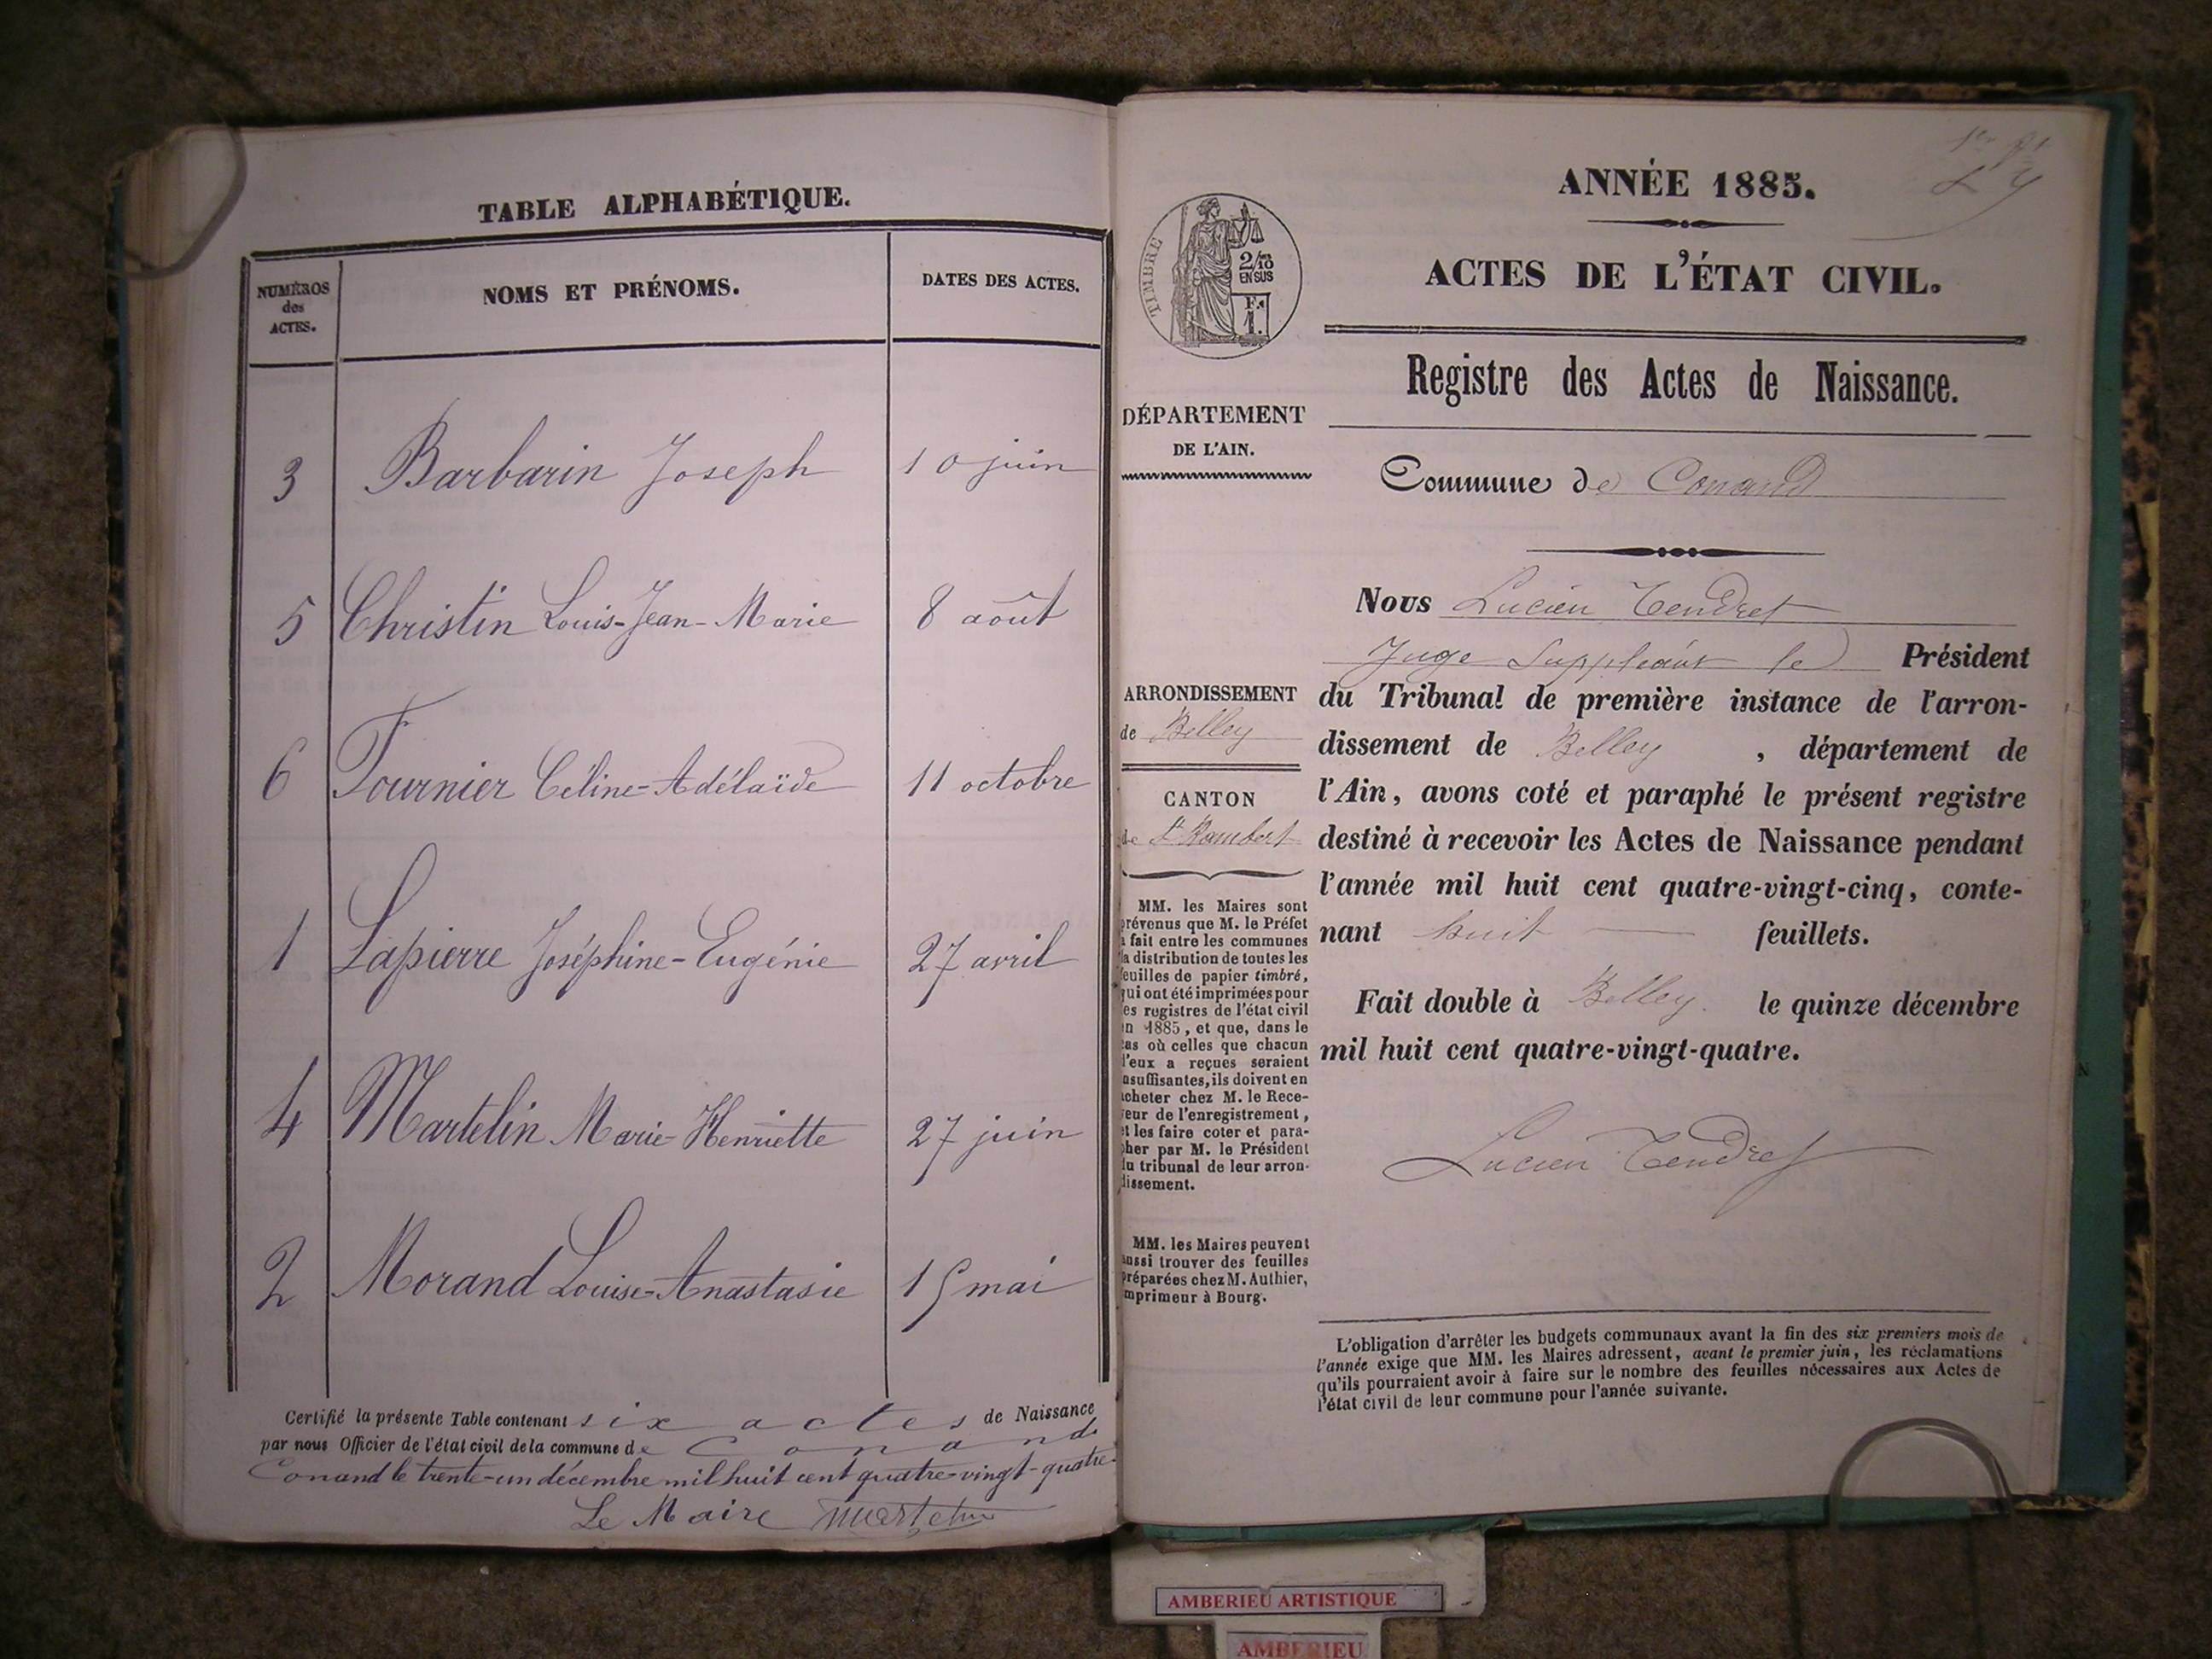 TABLE ALPHABÉTIQUE.
NUMÉROS des ACTES. NOMS ET PRÉNOMS. DATES DES ACTES.
3 Barbarin Joseph 10 juin
5 Christin Louis-Jean-Marie 8 août
6 Fournier Céline-Adélaïde 11 octobre
1 Lapierre Joséphine-Eugénie 27 avril
4 Martelin Marie-Henriette 27 juin
2 Morand Louise-Anastasie 15 mai
Certifié la présente Table contenant six actes de Naissance
par nous Officier de l'état civil de la commune de Conand
Conand le trente-un décembre mil huit cent quatre-vingt-quatre.
Le Maire Martelin
ANNÉE 1885.
ACTES DE L'ÉTAT CIVIL.
TIMBRE
2/10
EN SUS
1.
Registre des Actes de Naissance.
DÉPARTEMENT
DE L'AIN.
Commune de Conand
ARRONDISSEMENT
de Belley
CANTON
de St Rambert
MM. les Maires sont
prévenus que M. le Préfet
a fait entre les communes
la distribution de toutes les
feuilles de papier timbré,
qui ont été imprimées pour
les registres de l'état civil
en 1885, et que, dans le
cas où celles que chacun
d'eux a reçues seraient
insuffisantes, ils doivent en
acheter chez M. le Rece-
veur de l'enregistrement,
et les faire coter et para-
pher par M. le Président
du tribunal de leur arron-
dissement.
MM. les Maires peuvent
aussi trouver des feuilles
préparées chez M. Authier,
imprimeur à Bourg.
Nous Lucien Tendret
Juge Suppléant le Président
du Tribunal de première instance de l'arron-
dissement de Belley, département de
l'Ain, avons coté et paraphé le présent registre
destiné à recevoir les Actes de Naissance pendant
l'année mil huit cent quatre-vingt-cinq, conte-
nant huit feuillets.
Fait double à Belley. le quinze décembre
mil huit cent quatre-vingt-quatre.
Lucien Tendret
L'obligation d'arrêter les budgets communaux avant la fin des six premiers mois de
l'année exige que MM. les Maires adressent, avant le premier juin, les réclamations
qu'ils pourraient avoir à faire sur le nombre des feuilles nécessaires aux Actes de
l'état civil de leur commune pour l'année suivante.
AMBERIEU ARTISTIQUE
AMBERIEU